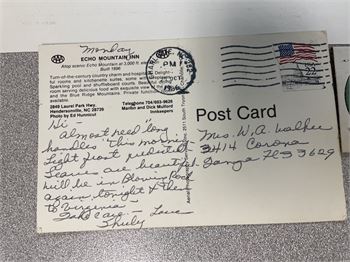 Monday
AAA
ECHO MOUNTAIN INN
Atop scenic Echo Mountain at 3,000 ft.
Built 1896
Turn-of-the-century country charm and hospitality. Delight-
ful rooms and kitchenette suites, some with
Sparkling pool and shuffleboard courts.
serving delicious food with exquisite view of
the Blue Ridge Mountains. Private
2849 Laurel Park Hwy.
Hendersonville, NC 28739
Photo by Ed Hunnicut
Telephone 704/693-9626
Marilor and Dick Mulford
Innkeepers
PM
OCT
1986
USA
22
Post Card
Hi -
Almost need "long
handles" this morning
Light frost predicted
Leaves are beautiful
Will be in Blowing Rock
again tonight & then
to Virginia
Take care - Love
Shirley
Mrs. W. A. Walker
3414 Corona
Tampa FL 33629